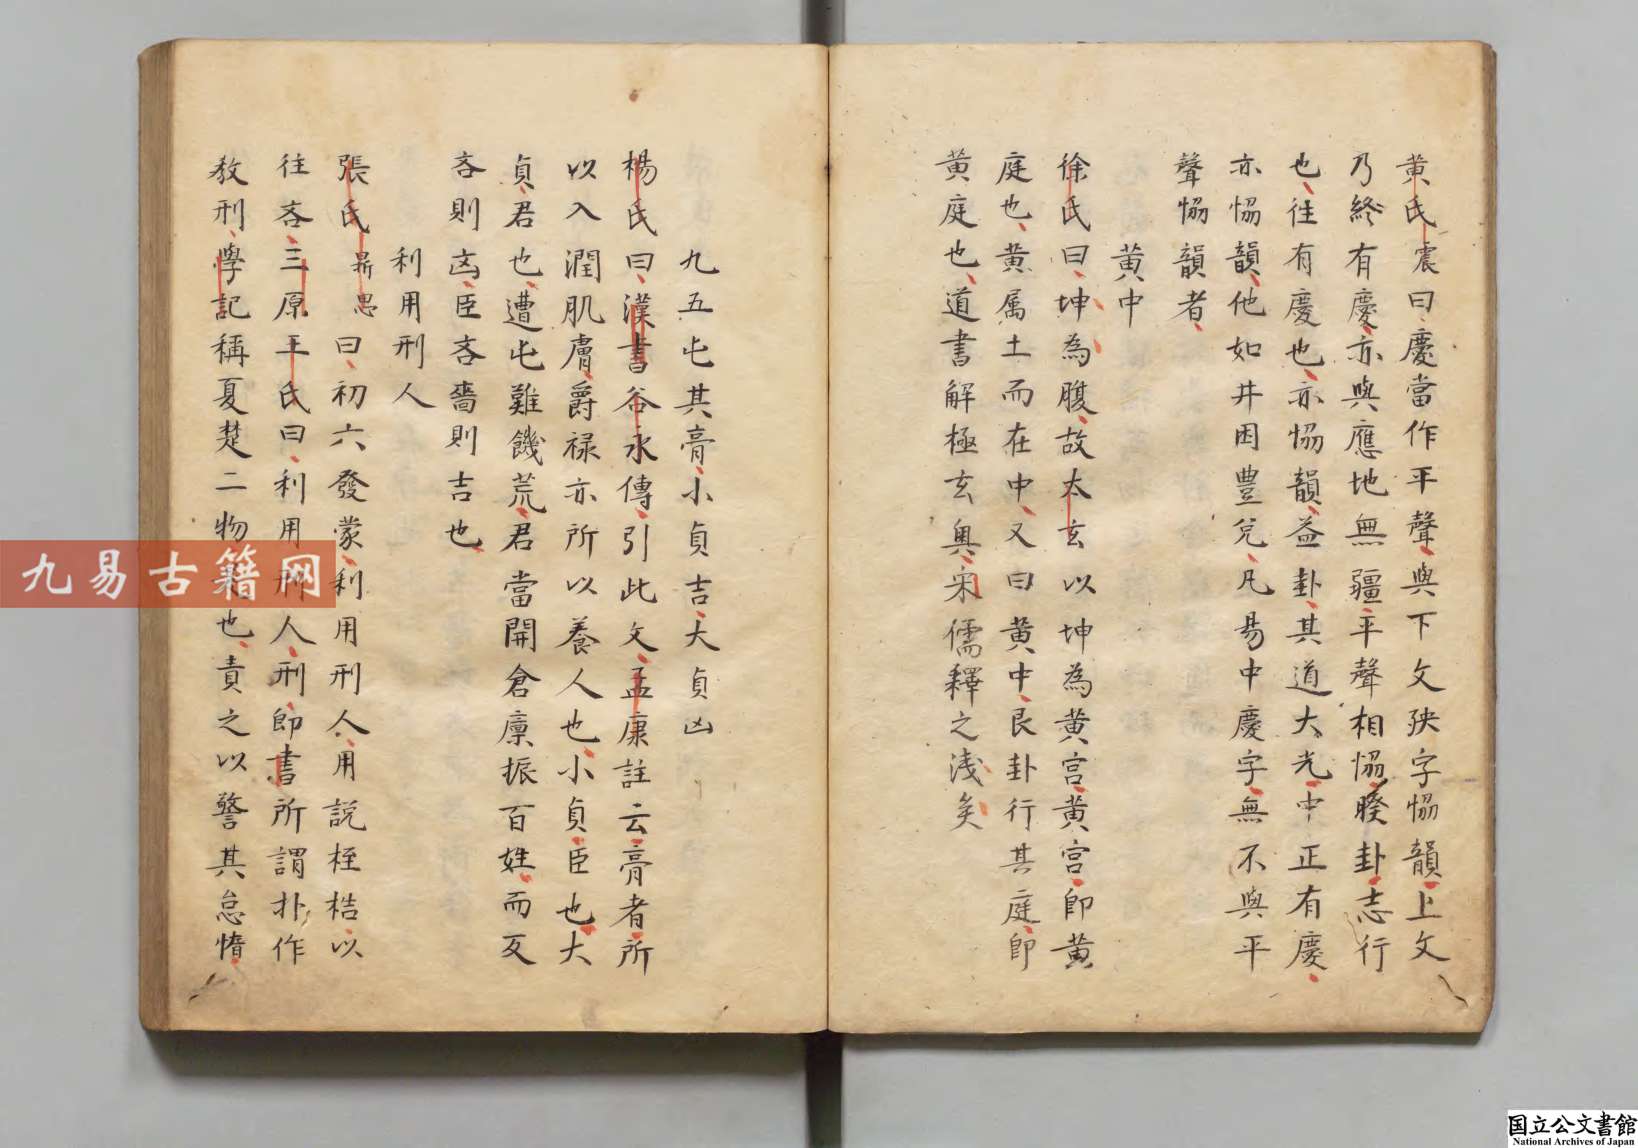 黄氏震曰慶當作平聲與下文殃字恊韻上文
乃終有慶亦與應地無疆平聲相恊睽卦志行
也往有慶也亦恊韻益卦其道大光中正有慶
亦恊韻他如井困豊兌凡昜中慶字無不與平
聲恊韻者
黄中
徐氏曰坤為腹故太玄以坤為黄宫黄宫即黄
庭也黄属土而在中又曰黄中艮卦行其庭即
黄庭也道書解極玄奥宋儒釋之浅矣
九五屯其膏小貞吉大貞凶
楊氏曰漢書谷永傳引此文孟康註云膏者所
以入潤肌膚爵禄亦所以養人也小貞臣也大
貞君也遭屯難饑荒君當開倉廪振百姓而反
吝則凶臣吝嗇則吉也
利用刑人
張氏鼎思曰初六發蒙利用刑人用説桎梏以
往吝三原王氏曰利用刑人刑即書所謂扑作
教刑學記稱夏楚二物是也責之以警其怠惰
九易古籍网
国立公文書館
National Archives of Japan